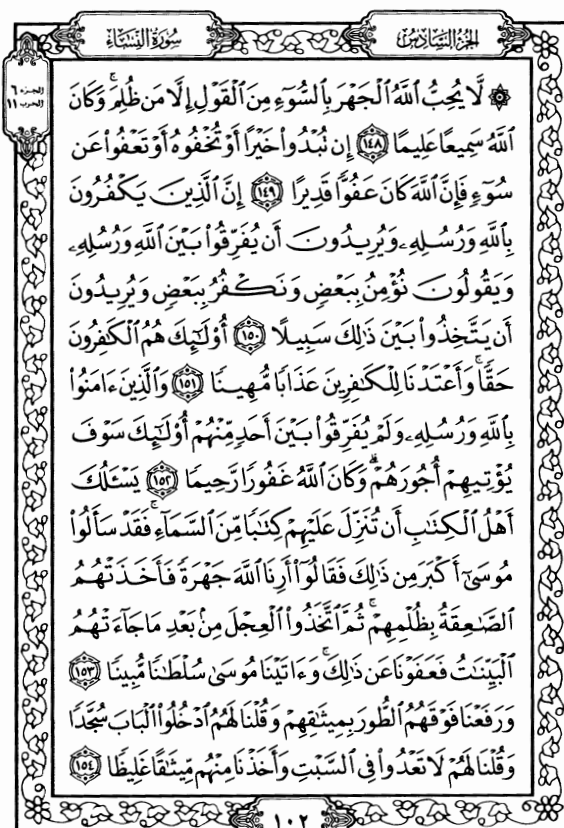 سُورَةُ النِّسَاءِ
الجُزءُ السَّادِسُ
الجزء ٦
الحزب ١١
۞ لَّا يُحِبُّ ٱللَّهُ ٱلۡجَهۡرَ بِٱلسُّوٓءِ مِنَ ٱلۡقَوۡلِ إِلَّا مَن ظُلِمَۚ وَكَانَ
ٱللَّهُ سَمِيعًا عَلِيمًا ١٤٨ إِن تُبۡدُواْ خَيۡرًا أَوۡ تُخۡفُوهُ أَوۡ تَعۡفُواْ عَن
سُوٓءٖ فَإِنَّ ٱللَّهَ كَانَ عَفُوّٗا قَدِيرًا ١٤٩ إِنَّ ٱلَّذِينَ يَكۡفُرُونَ
بِٱللَّهِ وَرُسُلِهِۦ وَيُرِيدُونَ أَن يُفَرِّقُواْ بَيۡنَ ٱللَّهِ وَرُسُلِهِۦ
وَيَقُولُونَ نُؤۡمِنُ بِبَعۡضٖ وَنَكۡفُرُ بِبَعۡضٖ وَيُرِيدُونَ
أَن يَتَّخِذُواْ بَيۡنَ ذَٰلِكَ سَبِيلًا ١٥٠ أُوْلَٰٓئِكَ هُمُ ٱلۡكَٰفِرُونَ
حَقّٗاۚ وَأَعۡتَدۡنَا لِلۡكَٰفِرِينَ عَذَابٗا مُّهِينٗا ١٥١ وَٱلَّذِينَ ءَامَنُواْ
بِٱللَّهِ وَرُسُلِهِۦ وَلَمۡ يُفَرِّقُواْ بَيۡنَ أَحَدٖ مِّنۡهُمۡ أُوْلَٰٓئِكَ سَوۡفَ
يُؤۡتِيهِمۡ أُجُورَهُمۡۗ وَكَانَ ٱللَّهُ غَفُورٗا رَّحِيمٗا ١٥٢ يَسۡـَٔلُكَ
أَهۡلُ ٱلۡكِتَٰبِ أَن تُنَزِّلَ عَلَيۡهِمۡ كِتَٰبٗا مِّنَ ٱلسَّمَآءِۚ فَقَدۡ سَأَلُواْ
مُوسَىٰٓ أَكۡبَرَ مِن ذَٰلِكَ فَقَالُوٓاْ أَرِنَا ٱللَّهَ جَهۡرَةٗ فَأَخَذَتۡهُمُ
ٱلصَّٰعِقَةُ بِظُلۡمِهِمۡۚ ثُمَّ ٱتَّخَذُواْ ٱلۡعِجۡلَ مِنۢ بَعۡدِ مَا جَآءَتۡهُمُ
ٱلۡبَيِّنَٰتُ فَعَفَوۡنَا عَن ذَٰلِكَۚ وَءَاتَيۡنَا مُوسَىٰ سُلۡطَٰنٗا مُّبِينٗا ١٥٣
وَرَفَعۡنَا فَوۡقَهُمُ ٱلطُّورَ بِمِيثَٰقِهِمۡ وَقُلۡنَا لَهُمُ ٱدۡخُلُواْ ٱلۡبَابَ سُجَّدٗا
وَقُلۡنَا لَهُمۡ لَا تَعۡدُواْ فِي ٱلسَّبۡتِ وَأَخَذۡنَا مِنۡهُم مِّيثَٰقًا غَلِيظٗا ١٥٤
١٠٢